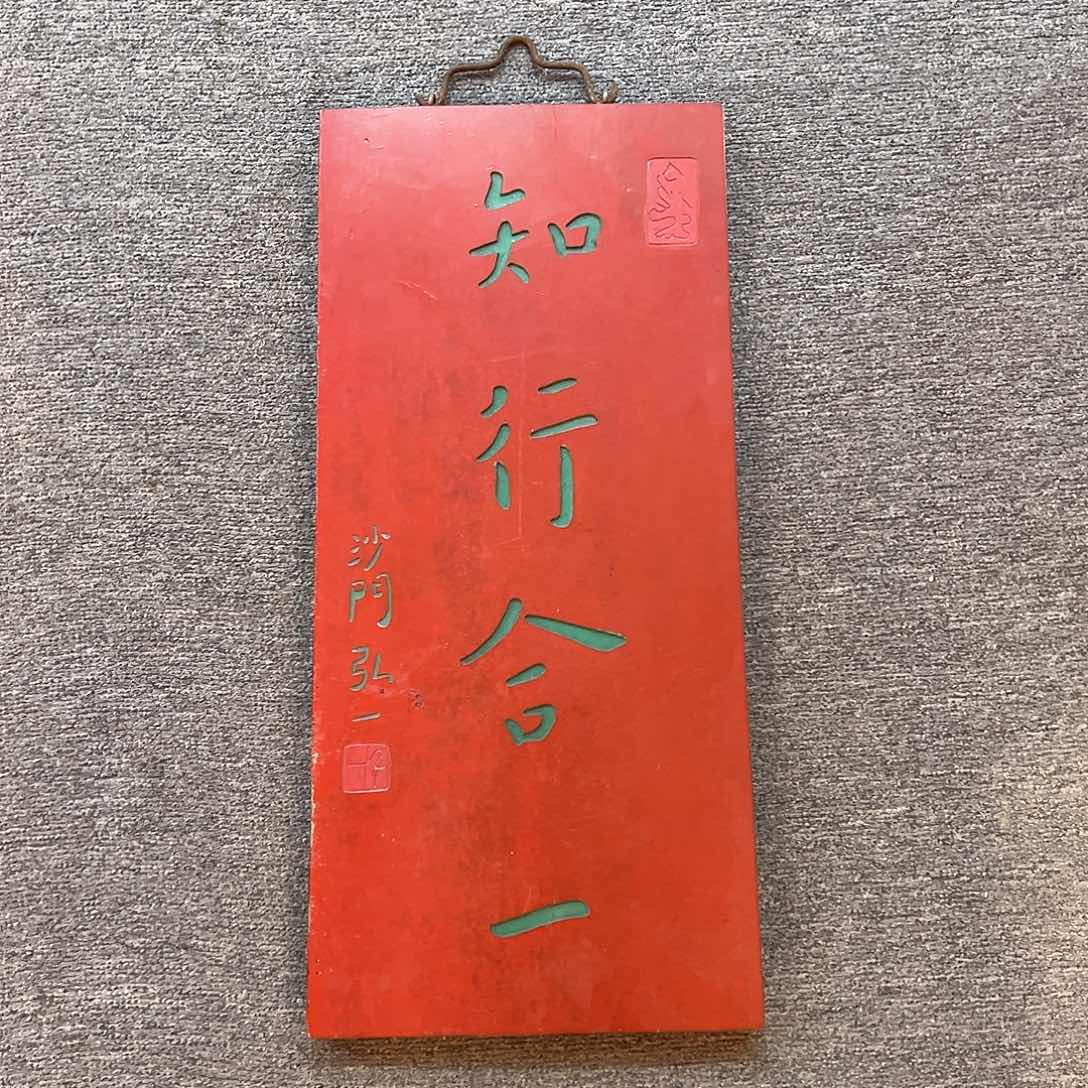 知行合一
沙門弘一